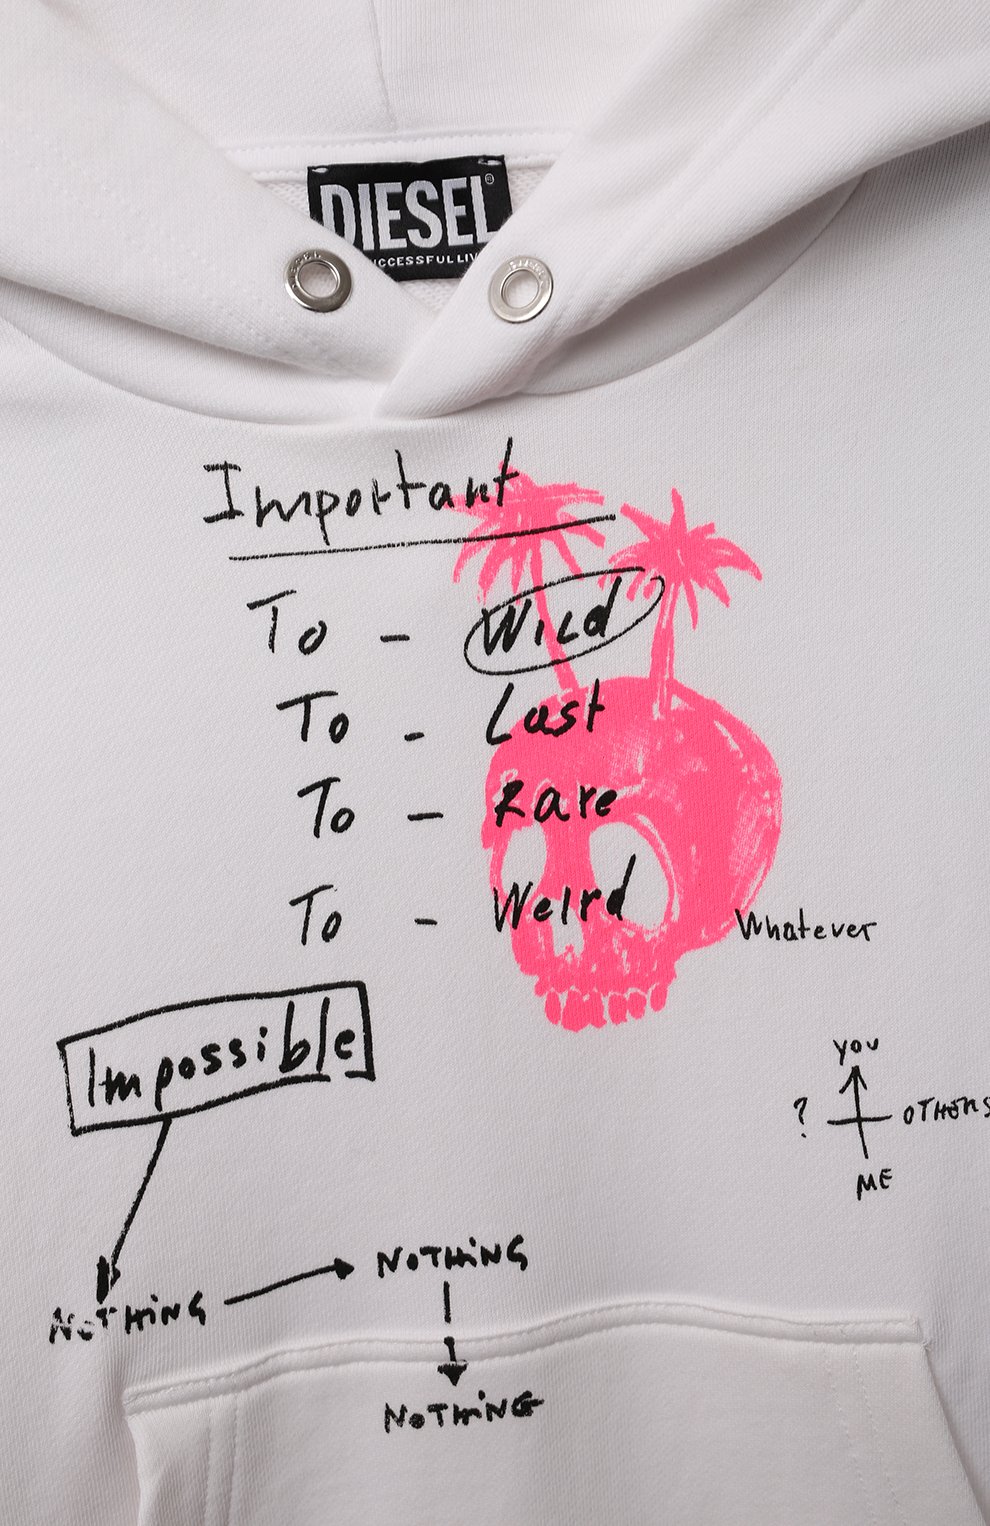 DIESEL®
UCCESSFULLIV
Important
To - Wild
To - Last
To - Rare
To - Weird
Whatever
Impossible
YOU
? OTHERS
ME
NOTHING
NOTHING
NOTHING